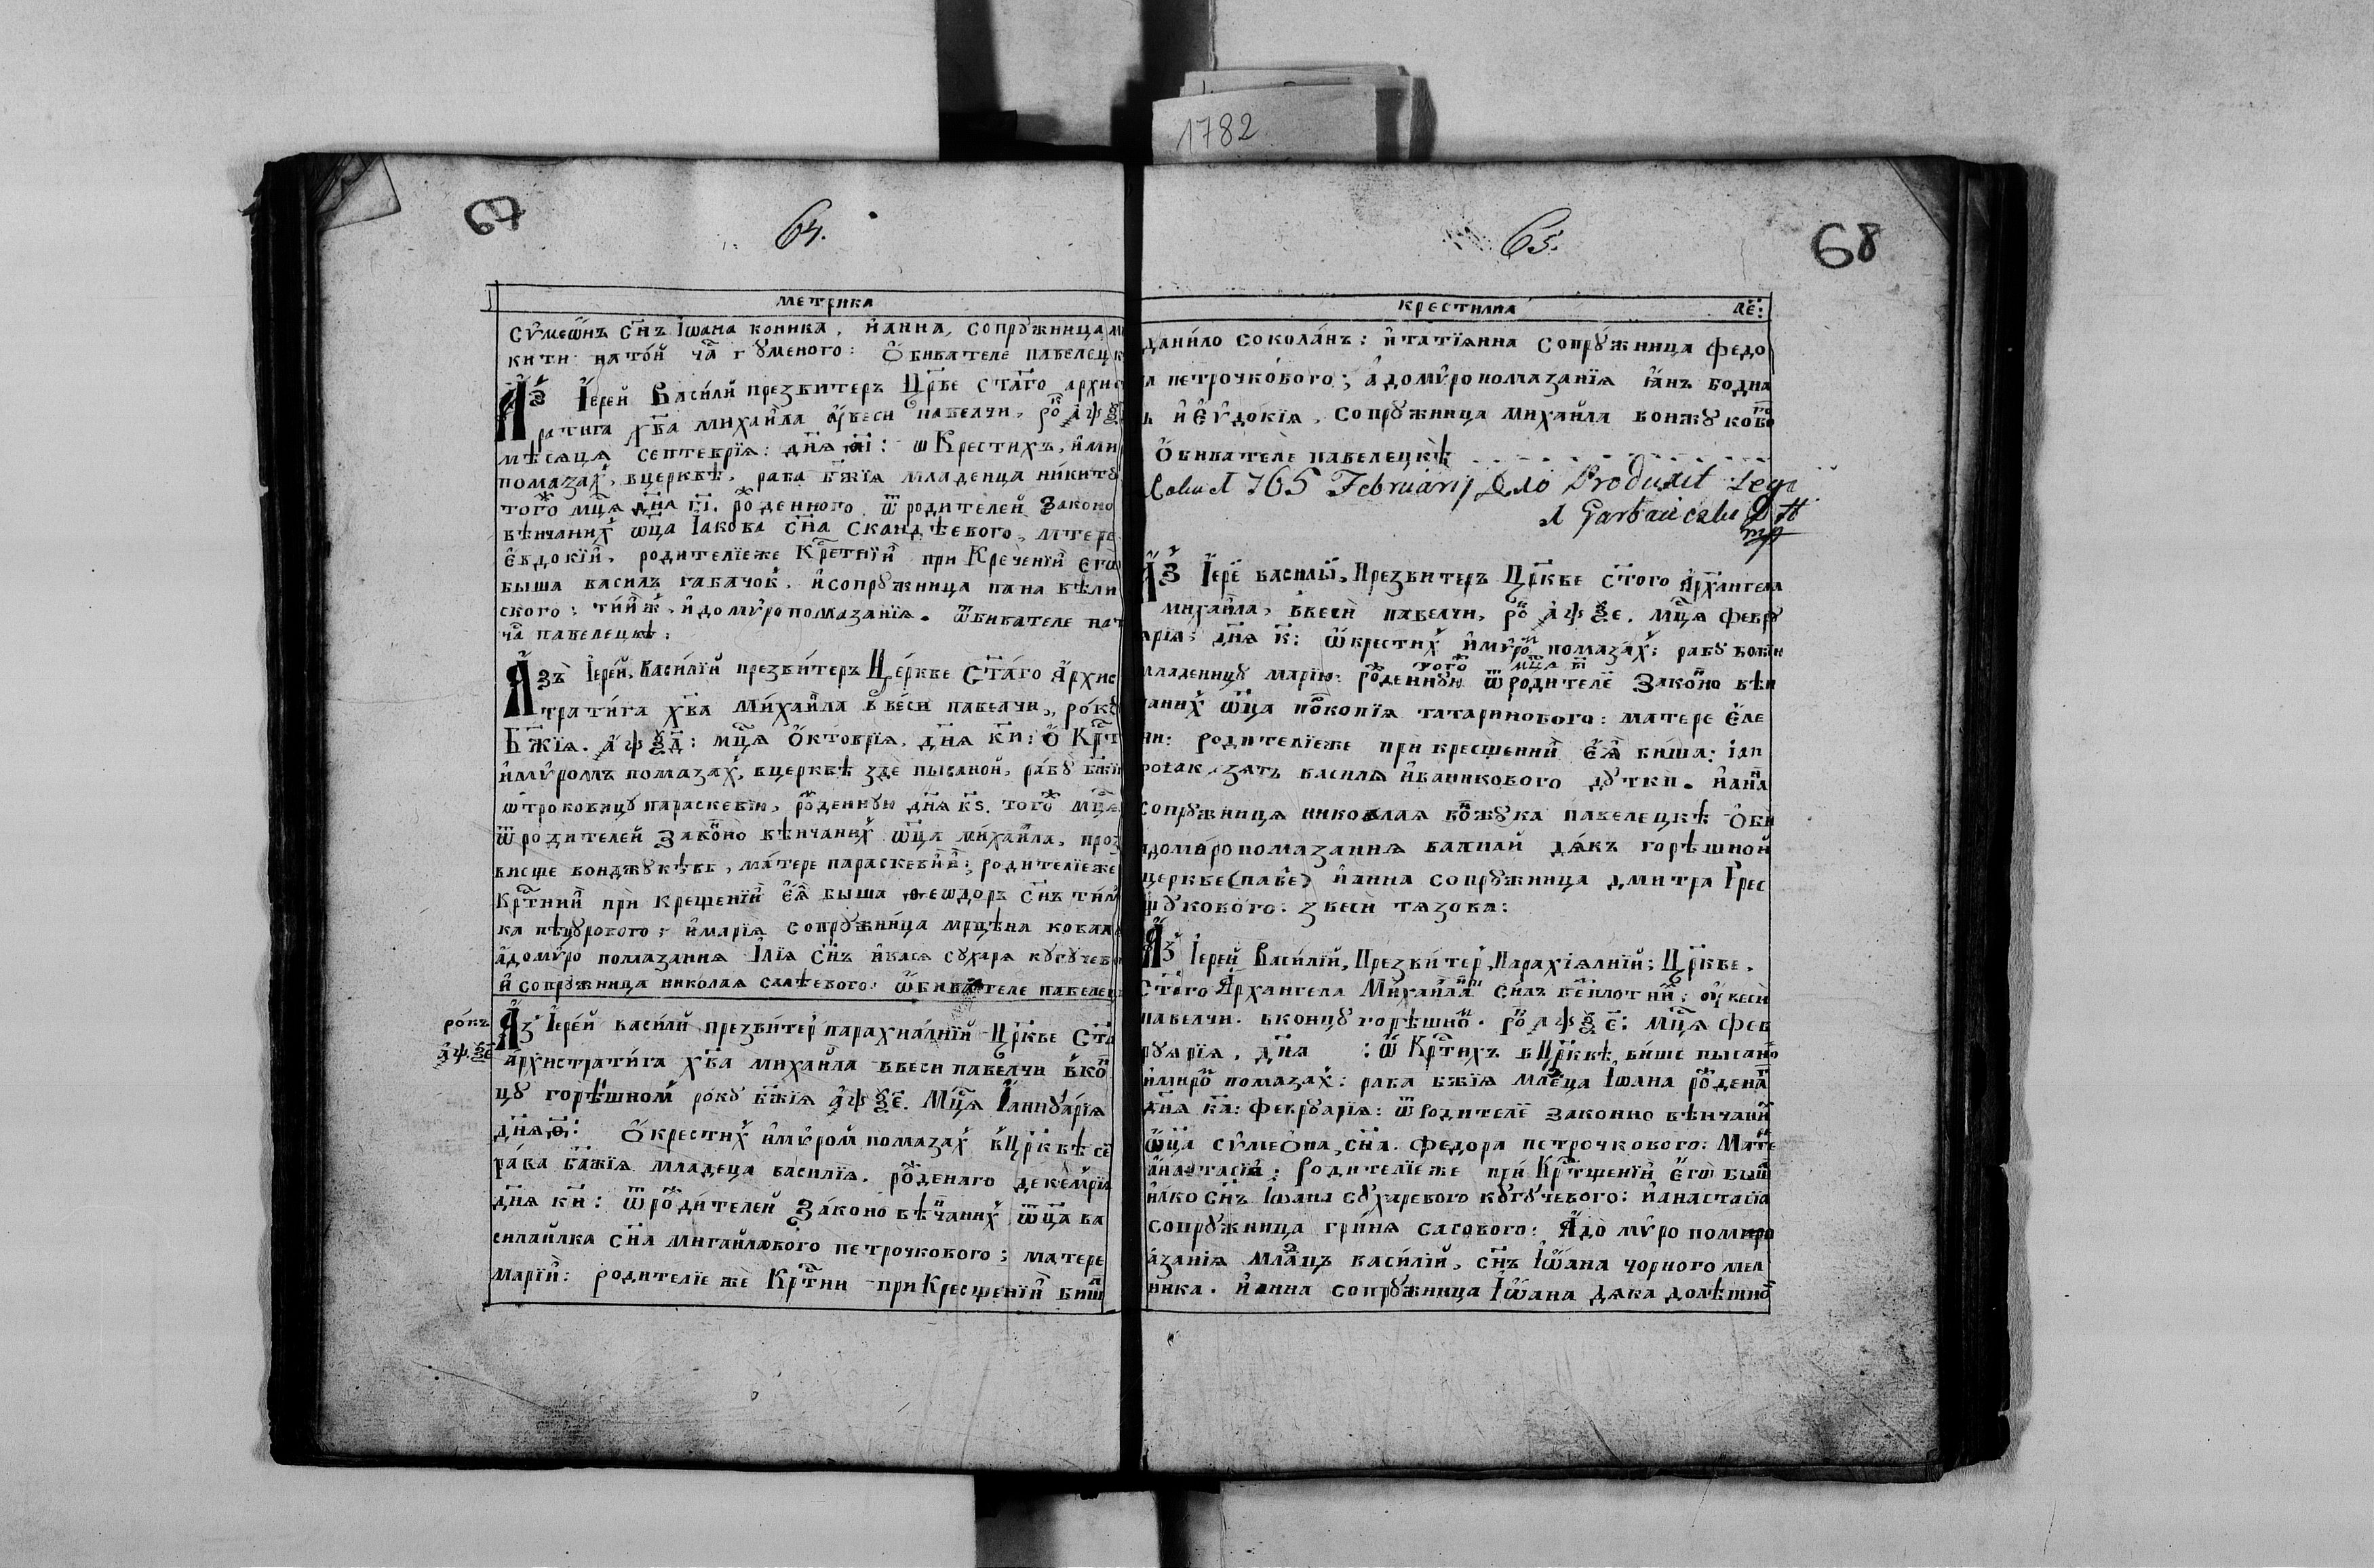 1782
67
64.
метрика
сѵмеѡ҃нъ сн҃ъ Іѡана коника, и҆анна, сопрꙋжница
кити натой ча҃ гꙋменого: Ѻбивателе павелецк
А҆́з Іерей Василий презвитеръ Цр҃кве стаго архис
ратига хв҃а михаила ꙋ҆веси павелчи, ро҃ аѱѯ
мѣсѧцѧ септеврїѧ: днѧ҃ аі: ѡкрестихъ, и҆ми
помазах, вцерквѣ, раба бж҃їѧ младенца никитꙋ
того мц҃ѧ дн҃ѧ гі. роденного ѿ родителей законо
вѣнчаних ѿц҃а Іакова сн҃а скандѣевого, мтере
Е҆вдокий, родителїеже Крт҃нїи при Кречений его
быша василъ габачок, и҆сопрꙋжница пана вѣли
ского: тийж, и҆домѵропомазанїѧ. ѿбивателе нат
ча҃ павелецкѣ:
Азъ Іерей, Василїй презвитеръ Церкве Стаго А҆рхис
тратига хв҃а Михаила ввеси павелчи, рокꙋ
Бж҃їѧ. аѱѯд: мц҃ѧ Ѻктоврїѧ. днѧ ки: Ѻ Крт҃
и҆мѵромъ помазах, вцерквѣ здѐ пысаной, рабꙋ бж҃їю
ѡтроковицꙋ параскевїю, роденнꙋю днѧ кѕ. того мц҃ѧ
ѿродителей законо вѣнчаних ѿц҃а михаила, проз
висще вонджꙋкѣвъ, матере параскевий; родителїеже
Крт҃ний при крещений еѧ быша ѳеѡдоръ сн҃ъ тим
ка пѣцꙋрового: и҆марїѧ сопрꙋжница мрцѣна ковалѧ
а҆домѵро помазаниѧ Ілїѧ сн҃ъ и҆васѧ сꙋхарѧ кꙋгꙋчев
и҆ сопрꙋжница николаѧ салѣевого: ѿбивателе павелец
рокъ
аѱѯе
Аз Іерей василий презвитер парахиалнїй Цр҃кве Ст҃а
архистратига хв҃а михаила ввеси павелчи вко
цꙋ горѣшном рокꙋ бж҃їѧ аѱѯе. Мц҃ѧ Іаннꙋарїѧ
днѧ ѳ: Ѻкрестих и҆мѵром помазах вЦр҃квѣ се
раба бажїѧ младеца василїѧ. роденаго декемрїѧ
днѧ ки: ѿродителей законо вѣчаних ѿц҃а ва
силайлка сн҃а мигайлѧвого петрочкового; матере
марїй: родителїе же Крт҃ни при Кресщений биш
68
65.
крестилна
ле:
данило соколанъ: и҆татїанна сопрꙋжница федо
а петрочкового; а҆домѵропомазанїѧ і҆анъ бодна
ь и҆ Еѵдокїѧ, сопрꙋжница михайла вонжꙋково
Ѻбивателе павелецкѣ
765 Februarij Produxit
Аз Іере василїй, Презвитеръ Цр҃кве ст҃ого Архангела
мигайла, ввеси павелчи, ро҃ аѱѯе, мц҃ѧ февр
арїѧ: днѧ к: ѿкрестих и҆мѵро помазах: рабꙋ божїю
того мц҃ѧ
младеницꙋ марїю: роденнꙋю ѿродителе законо вѣн
чаних ѿц҃а покопїѧ татаринового: матере Еле
ни: родителїеже при кресщений Еѧ биша: іан
роіак, зѧть василѧ и҆ваникового дꙋтки. и҆ана
сопрꙋжницѧ николаѧ вожꙋка павелецкѣ Ѻби
адомѵропомазаниѧ василий дѧкъ горѣшной
церкве (паве) и҆анна сопрꙋжница дмитра Грес
щꙋкового. звеси тѧзова:
Аз Іерей Василїй, Презвитер, Парахїѧлнїй; Цр҃кве,
Ст҃ого Архангела Михаила силъ беплотний: ꙋ҆веси
павелчи. вконцꙋ горѣшно. ро҃ аѱѯе: мц҃ѧ фев
рꙋарїѧ, днѧ : ѿ Крт҃ихъ вЦр҃квѣ више пысано
и҆миро помазах: раба бжїѧ млаеца Іѡана роденa
днѧ ка: феврꙋарїѧ: ѿродителе законно вѣнчаний
ѿц҃а сѵмеона, сн҃а. федора петрочкового: Мате
анастасїи: Родителїе же при Крт҃щений Его выш
и҆лко сн҃ъ Іѡана сꙋхаревого кꙋгꙋчевого: и҆анастасїа
сопрꙋжница гринѧ сасового: А҆до мѵро помиро
азанїѧ млацъ василїй, сн҃ъ Іѡана чорного мел
ника. и҆анна сопрꙋжница Іѡана дѧка долѣшно